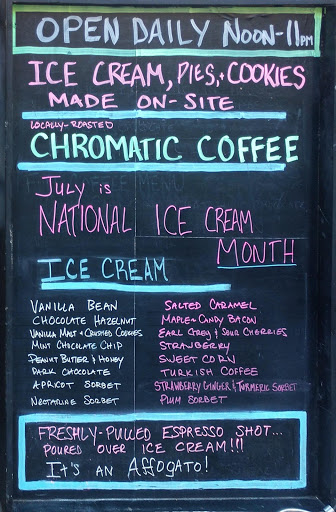 OPEN DAILY NOON-11PM
ICE CREAM, PIES, + COOKIES
MADE ON-SITE
LOCALLY-ROASTED
CHROMATIC COFFEE
JULY IS
NATIONAL ICE CREAM
MONTH
ICE CREAM
VANILLA BEAN
CHOCOLATE HAZELNUT
VANILLA MALT + CRUSHED COOKIES
MINT CHOCOLATE CHIP
PEANUT BUTTER & HONEY
DARK CHOCOLATE
APRICOT SORBET
NECTARINE SORBET
SALTED CARAMEL
MAPLE + CANDY BACON
EARL GREY & SOUR CHERRIES
STRAWBERRY
SWEET CORN
TURKISH COFFEE
STRAWBERRY GINGER & TURMERIC SORBET
PLUM SORBET
FRESHLY-PULLED ESPRESSO SHOT...
POURED OVER ICE CREAM!!!
IT'S AN AFFOGATO!